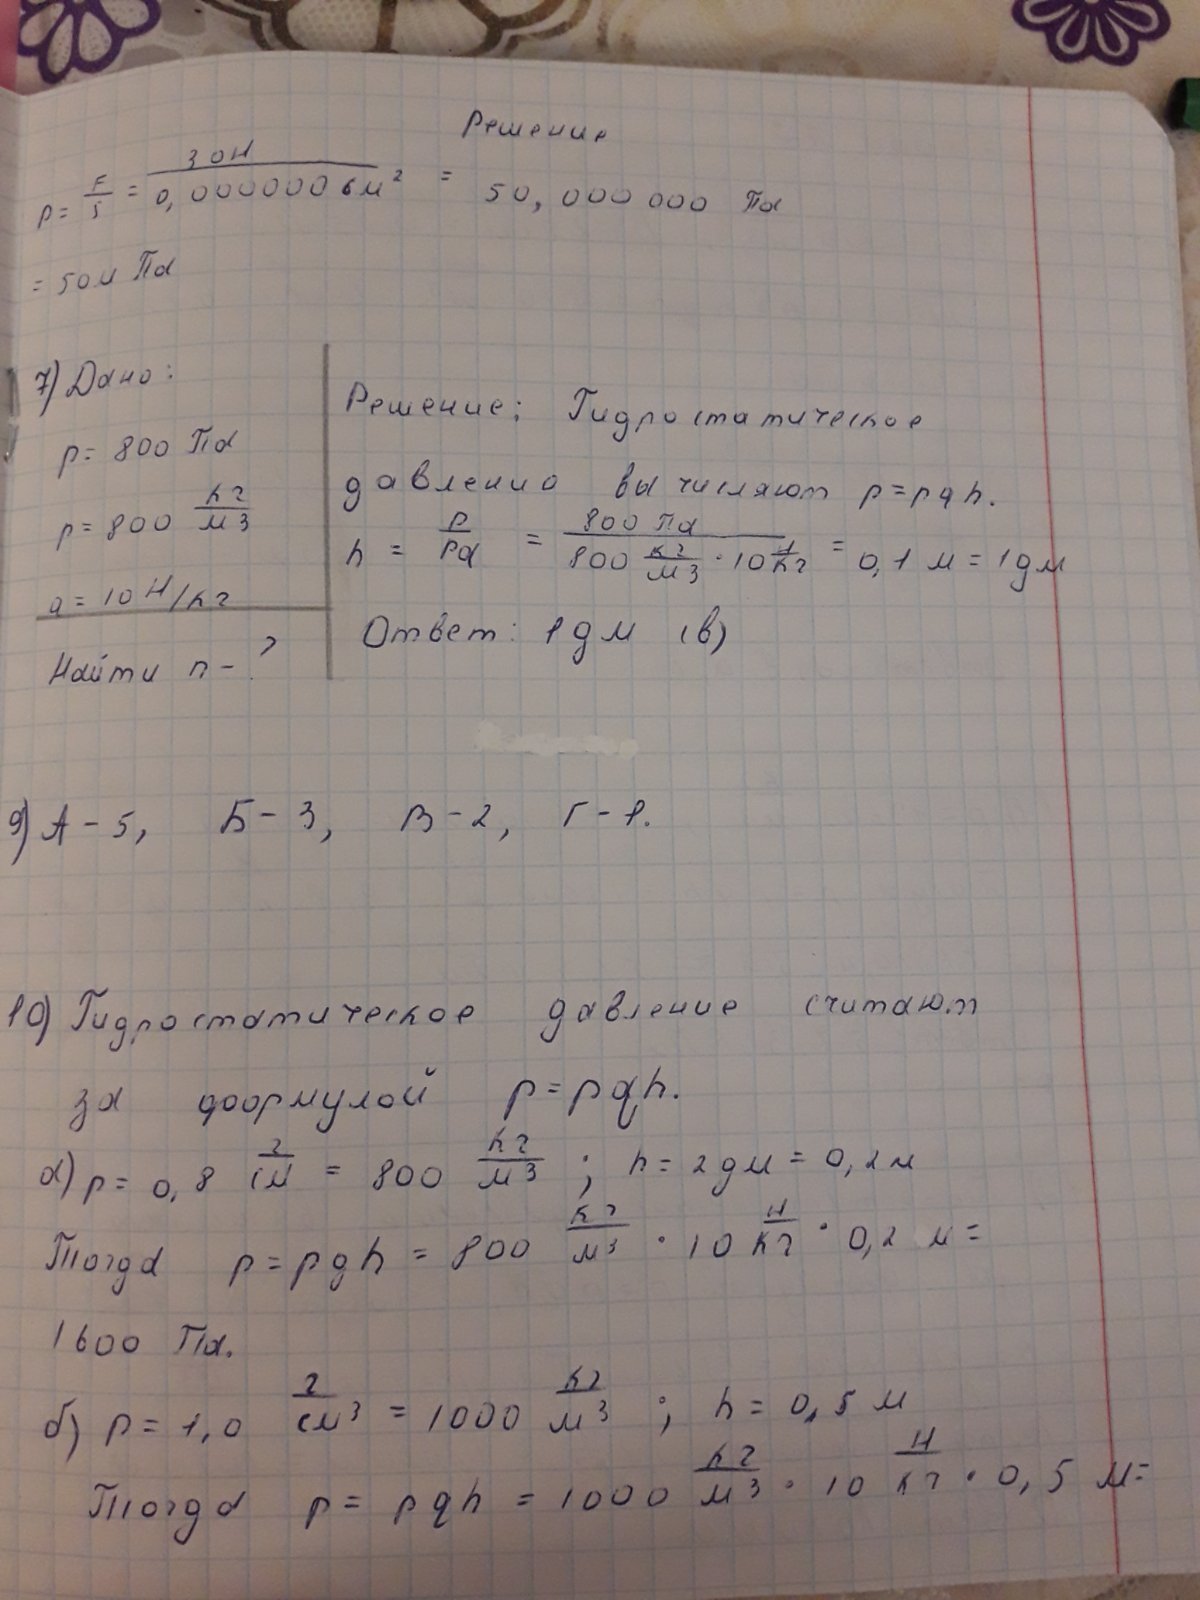 Решение
p = F/S = 30Н / 0,0000006 м² = 50,000000 Па
= 50М Па
7) Дано:
p = 800 Па
p = 800 кг/м3
g = 10 Н/кг
Найти h - ?
Решение: Гидростатическое
давление вычисляют p = pgh.
h = p/pg = 800 Па / 800 кг/м3 · 10 Н/кг = 0,1 м = 1 дм
Ответ: 1 дм (в)
9) А - 5, Б - 3, В - 2, Г - 1.
10) Гидростатическое давление считают
за формулой p = pgh.
а) p = 0,8 г/см = 800 кг/м3 ; h = 2 дм = 0,2 м
Тогда p = pgh = 800 кг/м3 · 10 Н/кг · 0,2 м =
1600 Па.
б) p = 1,0 г/см3 = 1000 кг/м3 ; h = 0,5 м
Тогда p = pgh = 1000 кг/м3 · 10 Н/кг · 0,5 м =